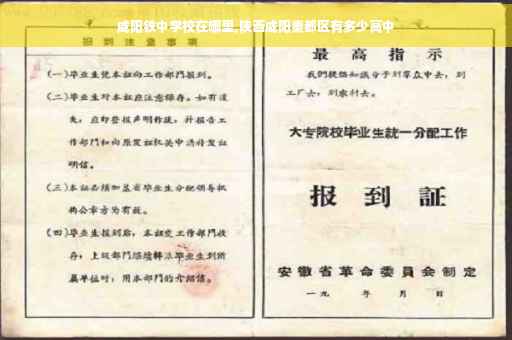 咸阳铁中学校在哪里,陕西咸阳秦都区有多少高中
报到注意事项
(一)毕业生凭本证向工作部门报到。
(二)毕业生对本证应注意保存。如有遗
失,应即登报声明作废,并报告工
作部门和向原发证机关申请补发证
明信。
(三)本证必须加盖省毕业生分配领导机
构公章方为有效。
(四)毕业生报到后,本证交工作部门收
存;上级部门
毕业生到所
属单位时,用本部门的介绍信。
最高指示
我们提倡知识分子到群众中去,到
工厂去,到农村去。
大专院校毕业生统一分配工作
报到証
安徽省革命委員会制定
一九 年 月 日